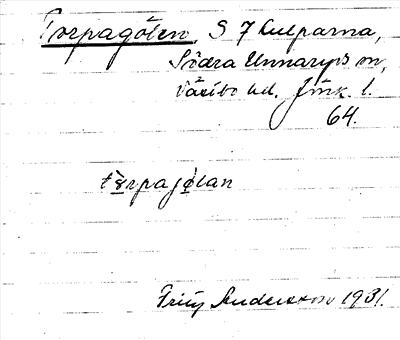 Torpagölen, S 7 Kulparna,
Södra Unnaryds sn,
Västbo hd, Jönk. l.
64.
tòrpajölan
Fritz Andersson 1931.